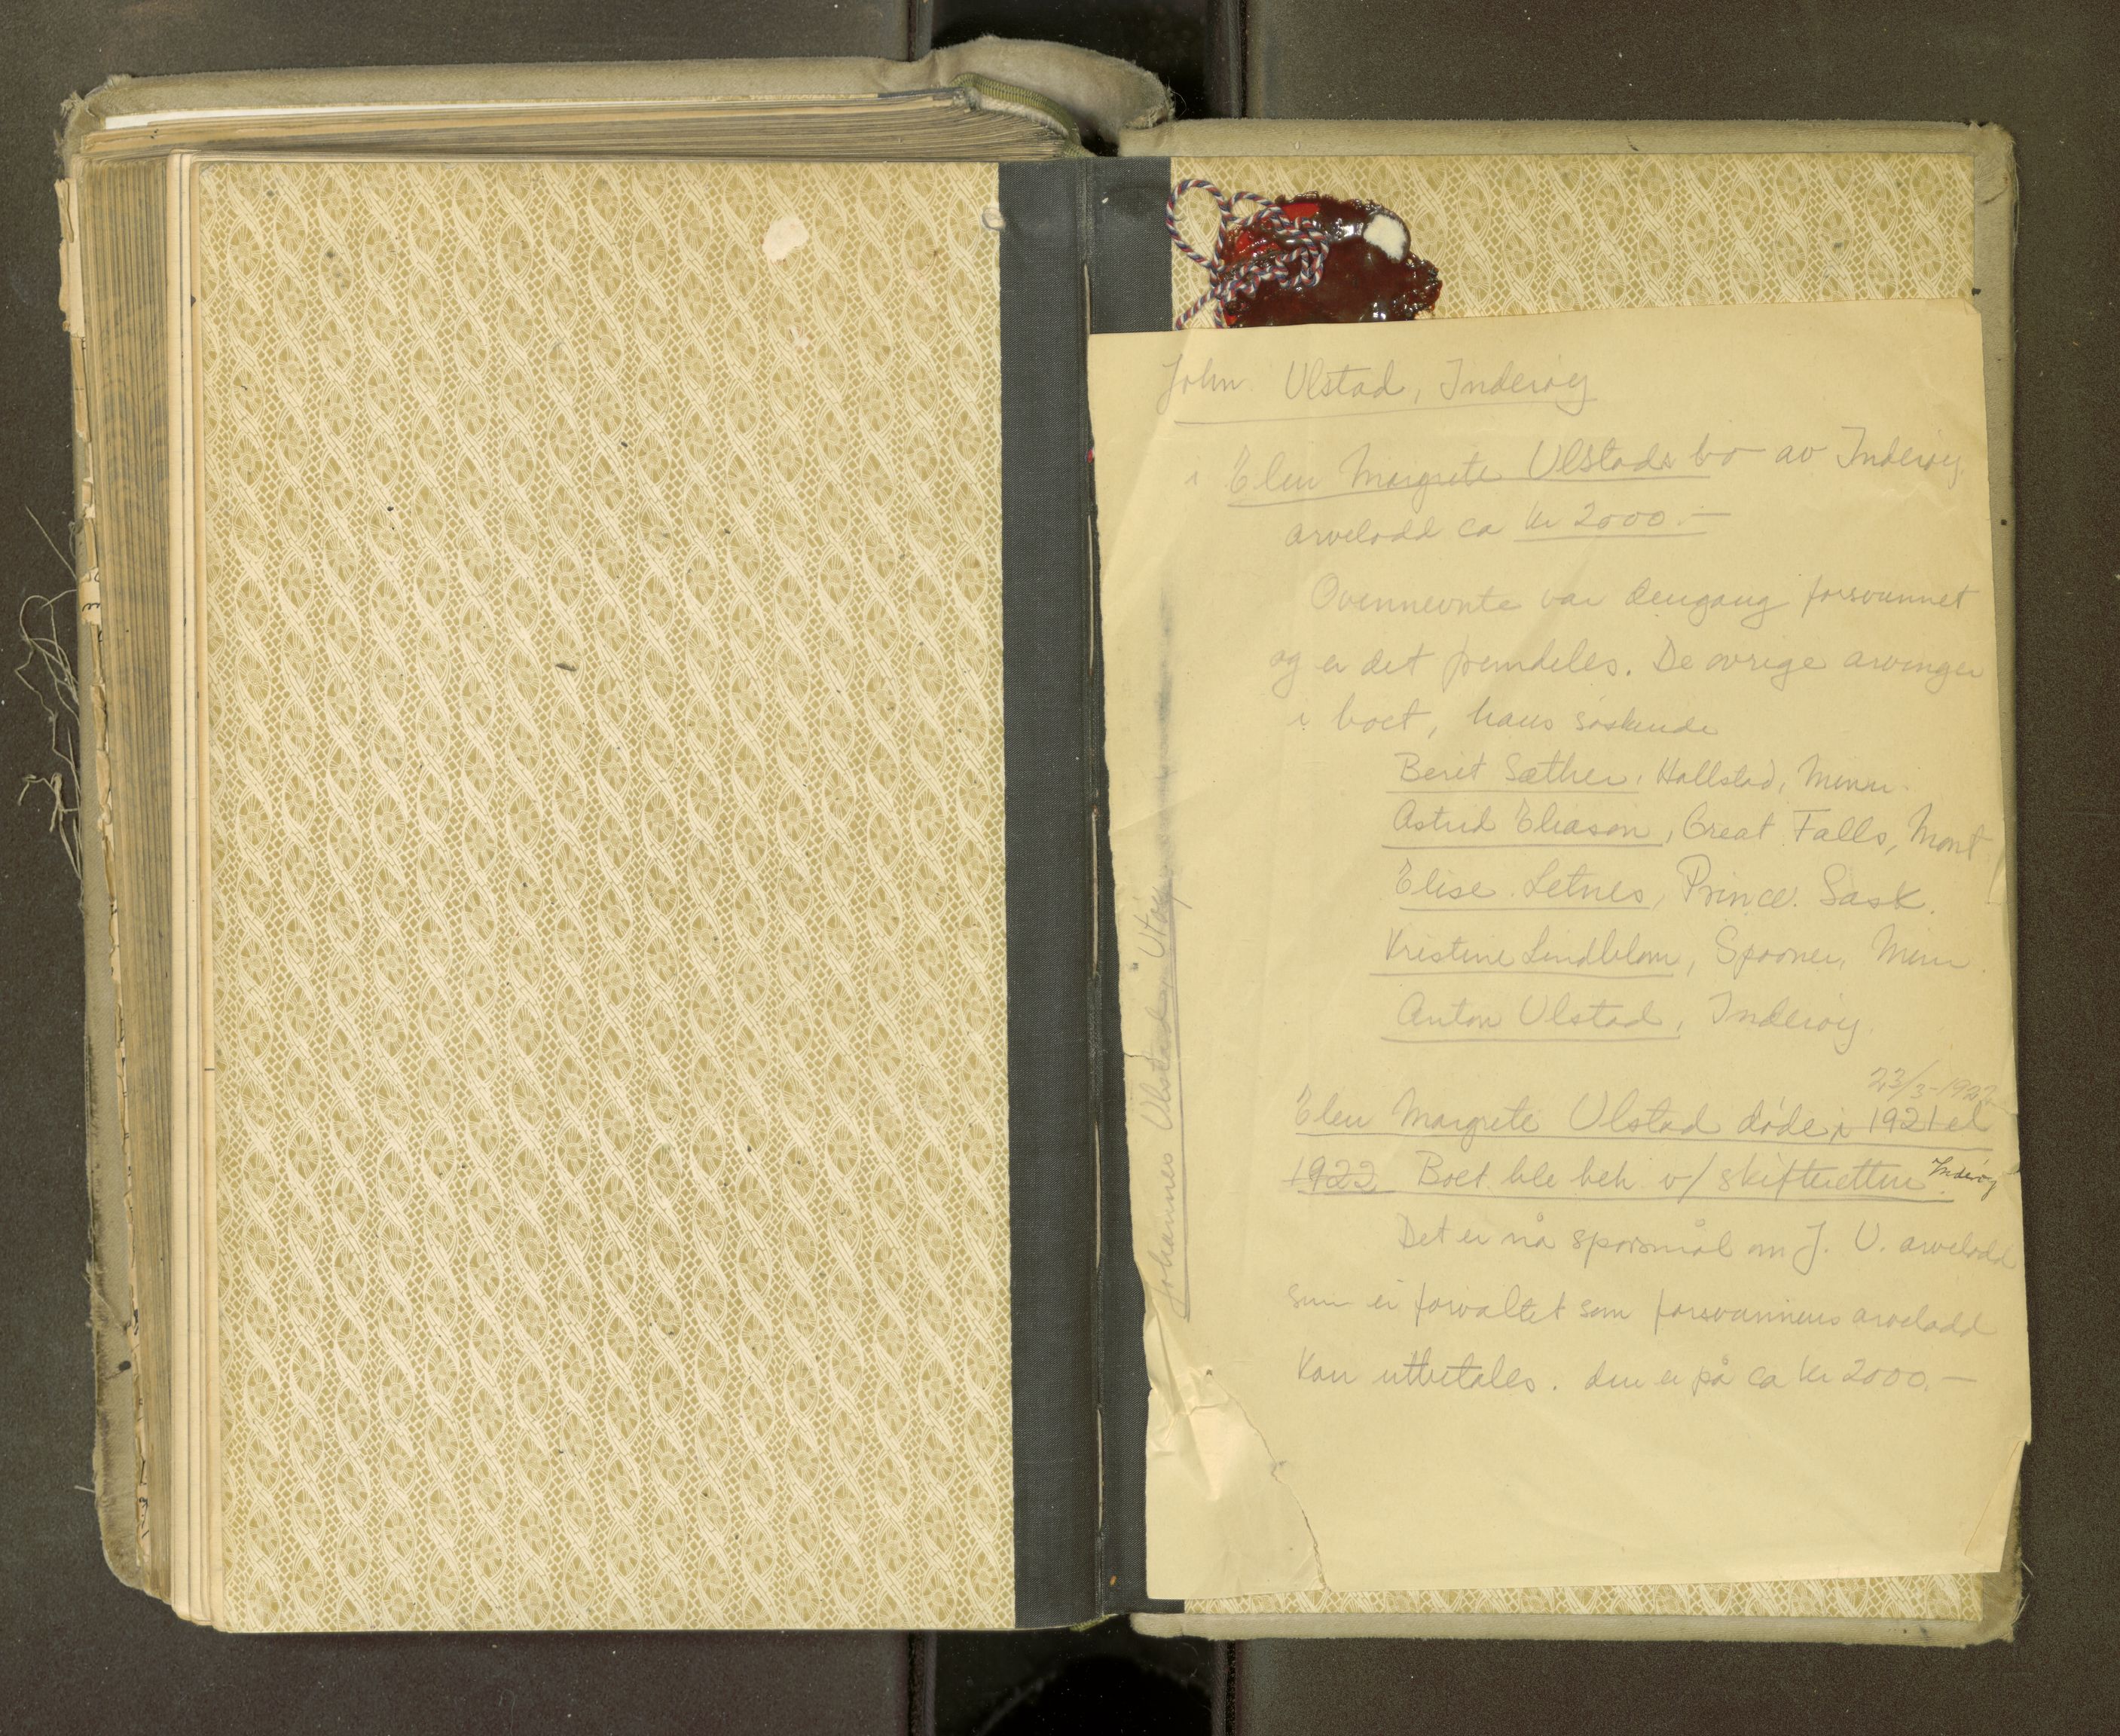 John Ulstad, Inderøy
i Elen Margrete Ulstads bo av Inderøy.
arvelodd ca kr 2000.—
Ovennevnte var dengang forsvunnet
og er det fremdeles. De øvrige arvinger
i boet, hans søskende
Berit Sæther, Hallstad, Minn.
Astrid Eliason, Great Falls, Mont
Elise Letnes, Prince. Sask.
Kristine Lindblom, Spooner, Minn.
Anton Ulstad, Inderøy.
23/3-1922
Elen Margrete Ulstad døde i 1921 el
1922 Boet ble beh v/ skifteretten Inderøy
Det er nå spørsmål om J. U. arvelodd
som er forvaltet som forsvunnens arvelodd
kan utbetales. den er på ca kr 2000.—
Johannes Ulstad, Utøy